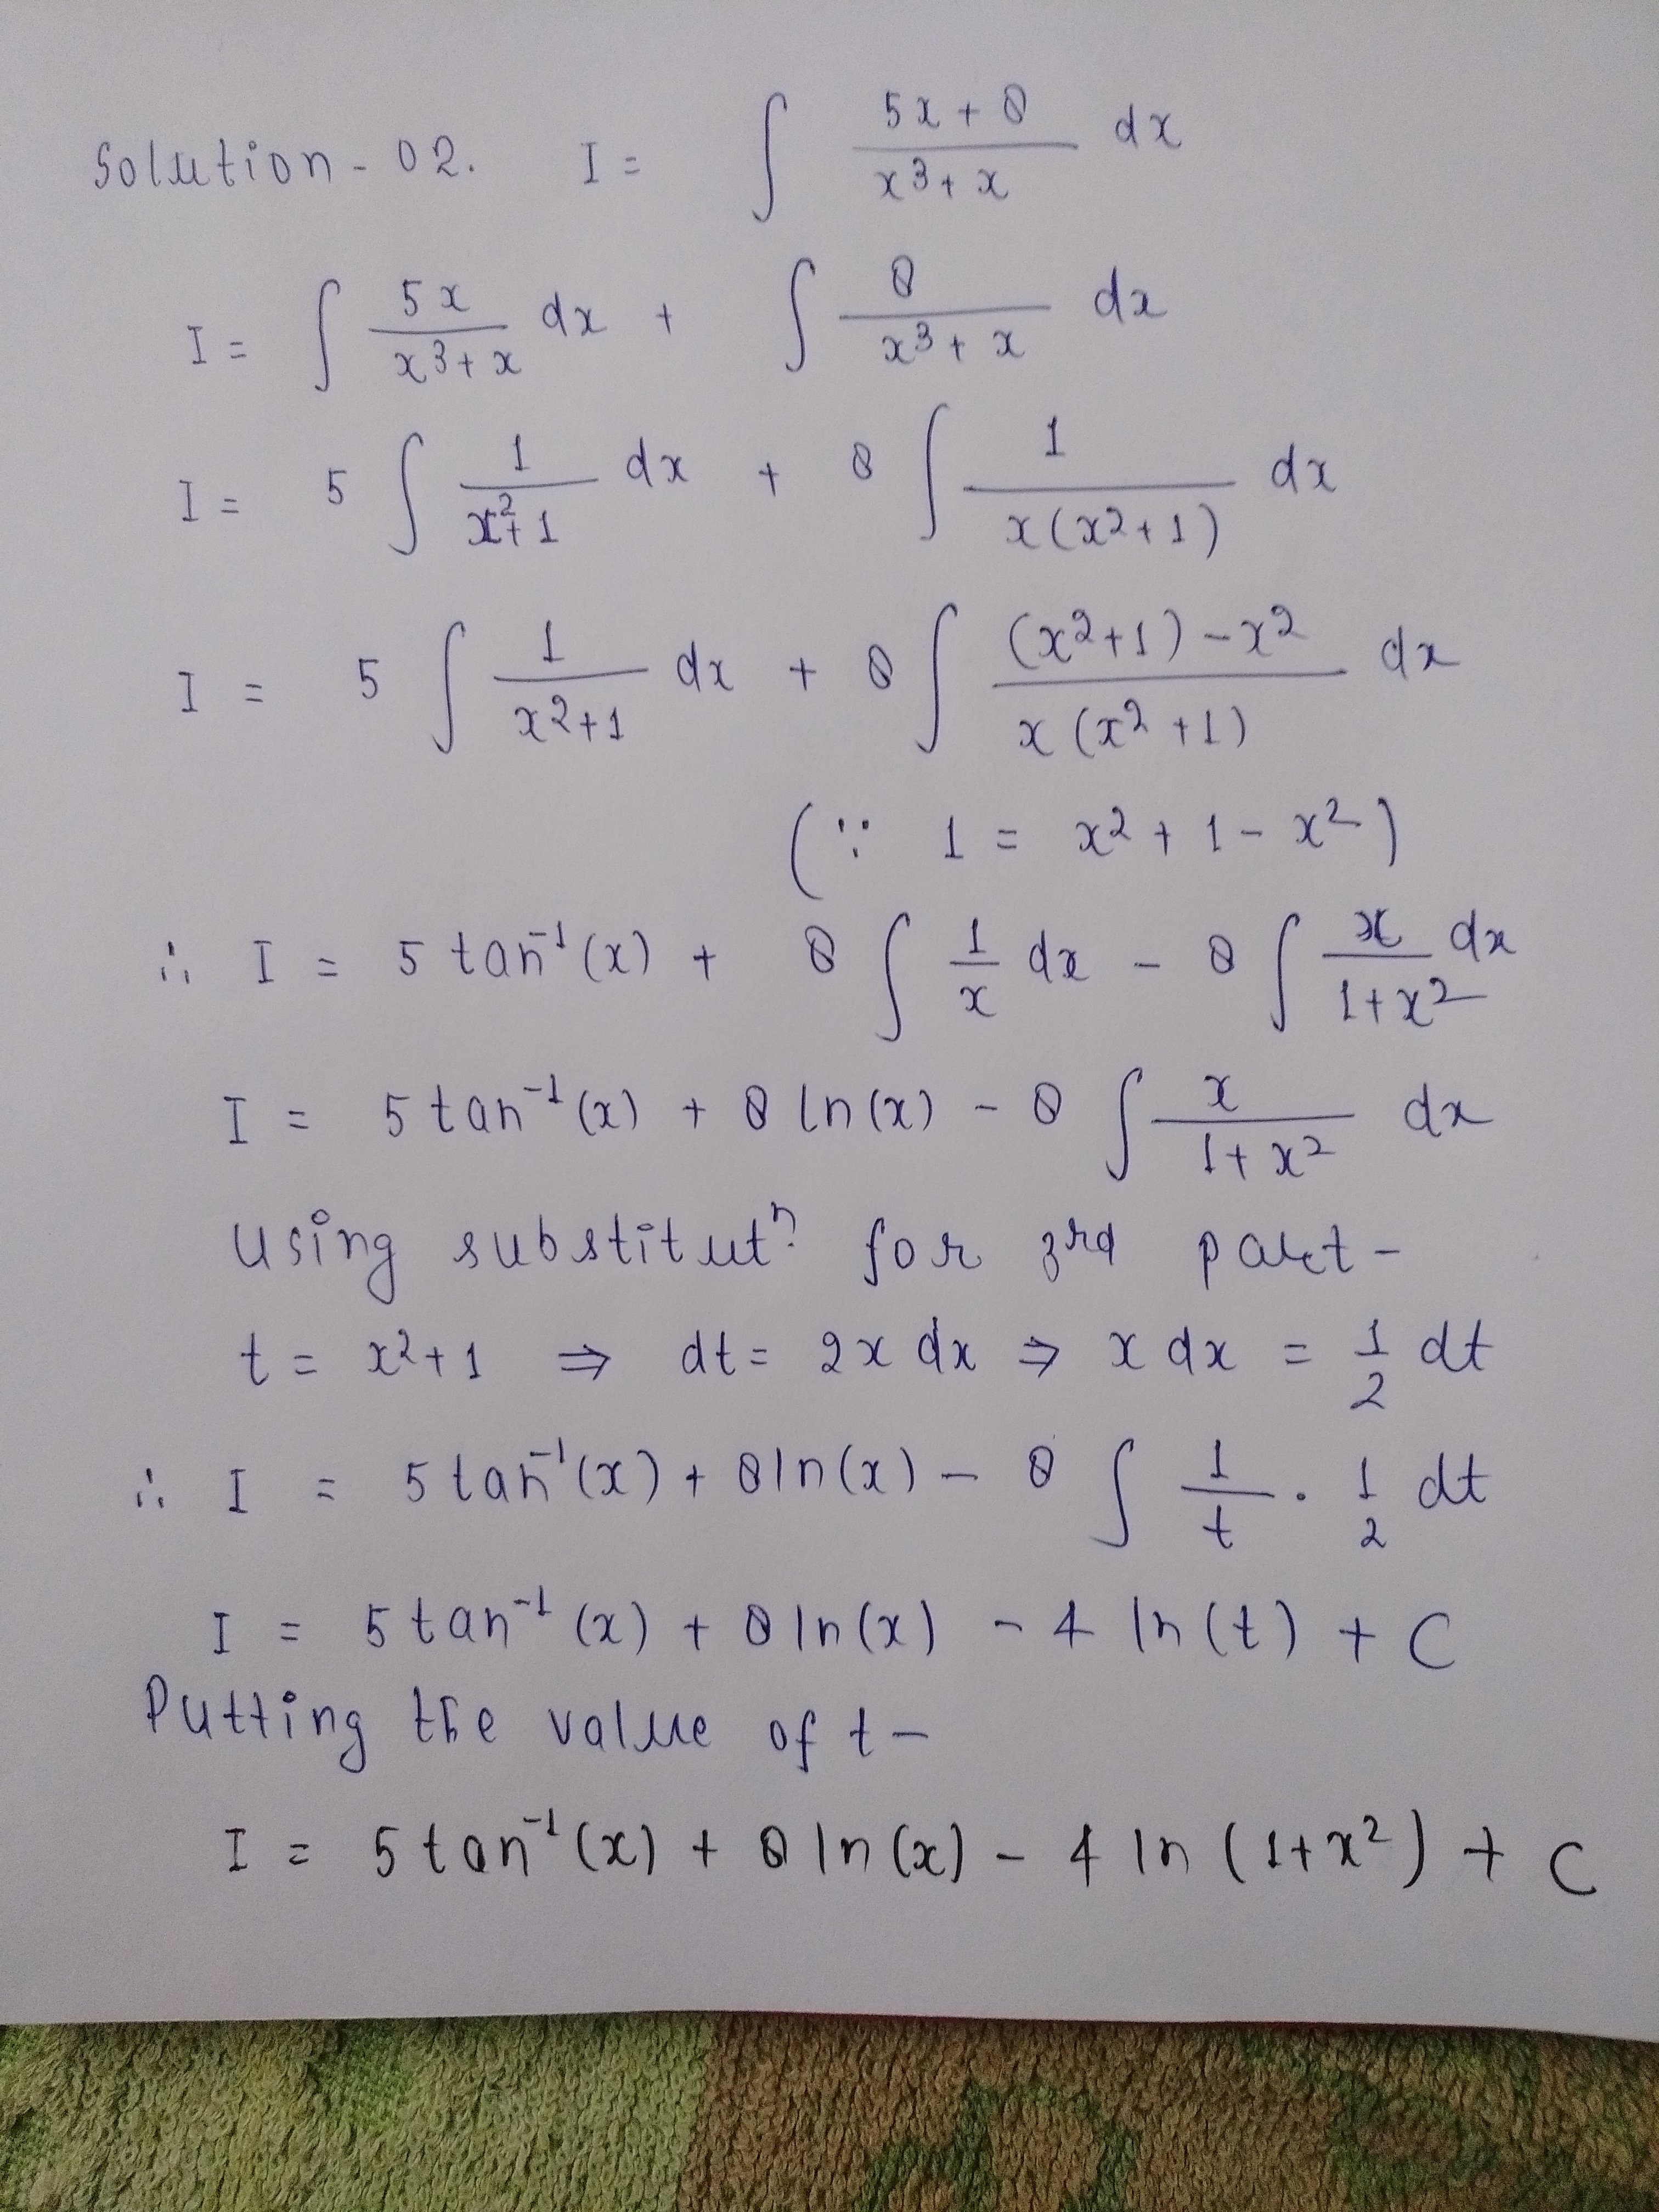 Solution - 02. I = ∫ (5x + 8)/(x³ + x) dx
I = ∫ 5x/(x³ + x) dx + ∫ 8/(x³ + x) dx
I = 5 ∫ 1/(x² + 1) dx + 8 ∫ 1/(x(x² + 1)) dx
I = 5 ∫ 1/(x² + 1) dx + 8 ∫ ((x² + 1) - x²)/(x(x² + 1)) dx
(∵ 1 = x² + 1 - x²)
∴ I = 5 tan⁻¹(x) + 8 ∫ 1/x dx - 8 ∫ x/(1 + x²) dx
I = 5 tan⁻¹(x) + 8 ln(x) - 8 ∫ x/(1 + x²) dx
Using substitutⁿ. for 3rd part -
t = x² + 1 ⇒ dt = 2x dx ⇒ x dx = 1/2 dt
∴ I = 5 tan⁻¹(x) + 8 ln(x) - 8 ∫ 1/t · 1/2 dt
I = 5 tan⁻¹(x) + 8 ln(x) - 4 ln(t) + C
Putting the value of t -
I = 5 tan⁻¹(x) + 8 ln(x) - 4 ln(1 + x²) + C